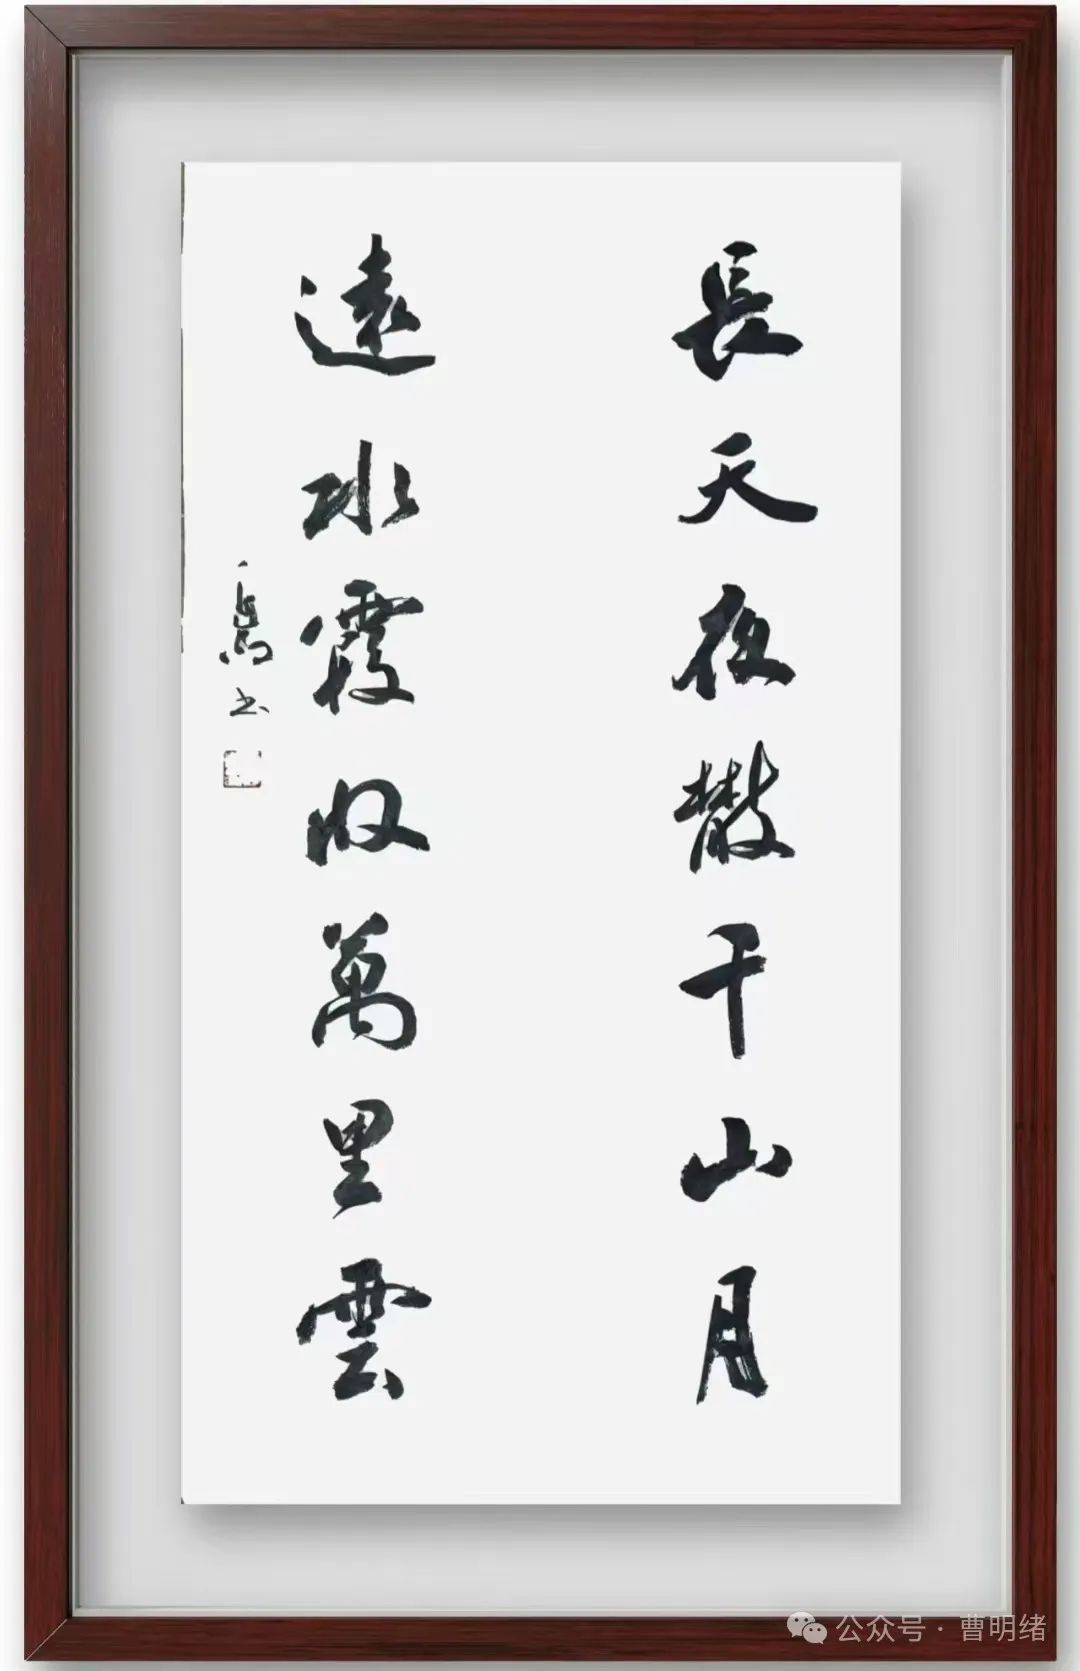 長天夜散千山月
遠水霞收萬里雲
书
公众号 · 曹明绪